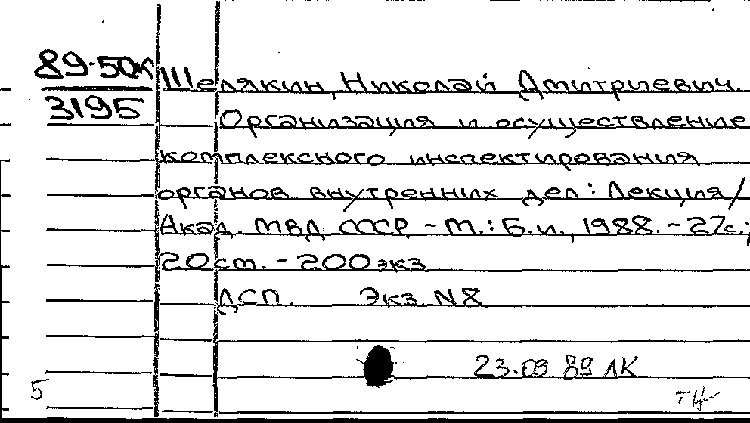 89-50к Шелякин, Николай Дмитриевич.
3195 Организация и осуществление
комплексного инспектирования
органов внутренних дел: Лекция/
Акад. МВД СССР. - М.: Б.и., 1988. - 27с.;
20см. - 200экз
ДСП. Экз N8
23.09 89 ЛК
5